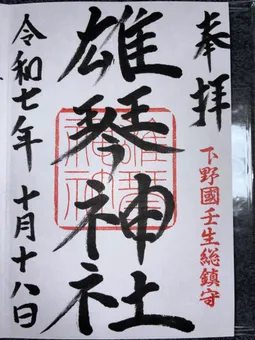 奉拝
下野國壬生総鎮守
雄琴神社
令和七年 十月十八日